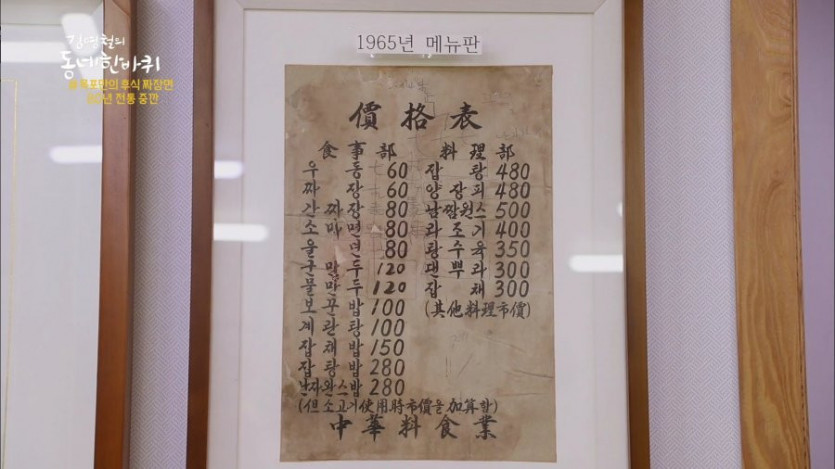 김영철의
동네한바퀴
후식 짜장면
전통 중판
1965년 메뉴판
價格表
食事部
우동 60
짜장 60
간짜장 80
소마면 80
울면 80
군만두 120
물만두 120
보끈밥 100
계란탕 100
잡채밥 150
잡탕밥 280
난자완스밥 280
料理部
잡탕 480
양장피 480
남짬완스 500
라조기 400
탕수육 350
댄뿌라 300
잡채 300
(其他料理市價)
(但 소고기使用時市價を加算함)
中華料食業